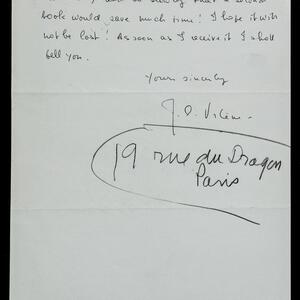 book would save much time! I hope it will
not be lost! As soon as I receive it I shall
tell you.
Yours sincerely
19 rue du Dragon
Paris